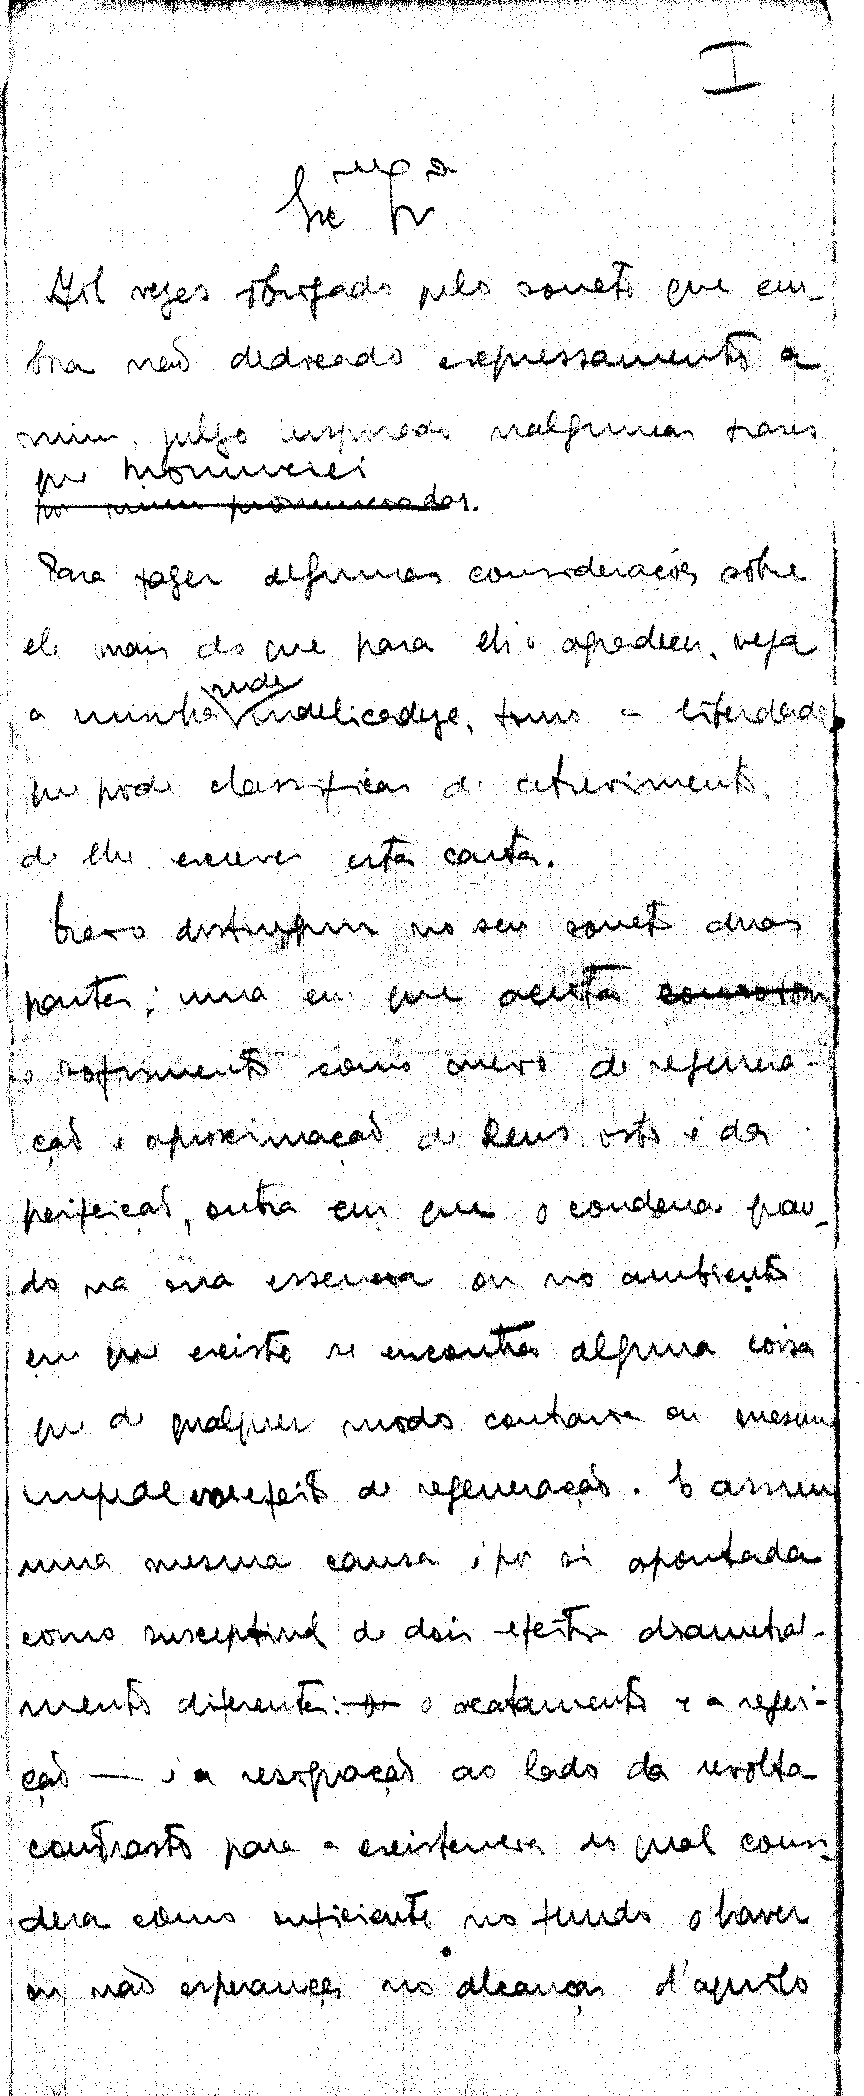 I
Mil vezes obrigado pelo soneto que em-
bora não dedicado expressamente a
mim, julgo inspirado nalgumas frases
que pronunciei
por mim pronunciadas.
Para fazer algumas considerações sobre
ele mais do que para lh'o agradecer, veja
rude
a minha indelicadeza, tomo a liberdade,
que pode classificar de atrevimento,
de lhe escrever esta carta.
Creio distinguir no seu soneto duas
partes; uma em que aceita
o sofrimento como meio de regenera-
ção e aproximação de Deus isto é da
perfeição, outra em que o condena quan-
do na sua essencia ou no ambiente
em que existe se encontra alguma coisa
que de qualquer modo contrarie ou mesmo
impede esse efeito de regeneração. E assim
uma mesma causa é por si apontada
como susceptivel de dois efeitos diametral-
mente diferentes: o acatamento e a regei-
ção — é a resignação ao lado da revolta
contraste para a existencia do qual consi-
dera como suficiente no fundo o haver
ou não esperanças no alcançar d'aquilo